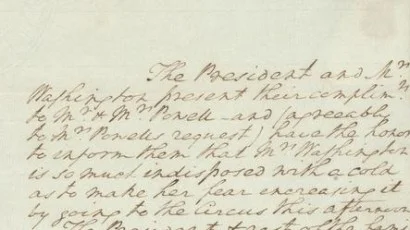 The President and Mrs
Washington present their complimts
to Mr & Mrs Powell—and (agreeably
to Mrs Powells request) have the honor
to inform them that Mrs Washington
is so much indisposed with a cold
as to make her fear encreasing it
by going to the Circus this afternoon
The President & rest of the